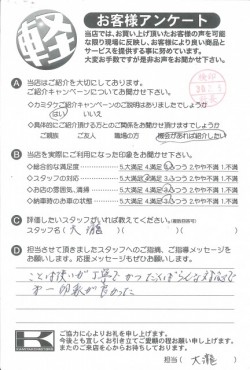 軽
お客様アンケート
当店では、お買い上げ頂いたお客様の声を可能
な限り現場に反映し、お客様により良い商品と
サービスを提供する事に努めています。
大変お手数ですが是非お声をお聞かせ下さい。
A 当店はご紹介を大切にしております。
ご紹介キャンペーンについてお聞かせ下さい。
・カミタケご紹介キャンペーンのご説明はありましたでしょうか
はい いいえ
・具体的にご紹介頂ける方とのご関係をお聞かせ頂けますでしょうか
ご親族 ご友人 職場の方 機会があれば紹介したい
B 当店を実際にご利用になった印象をお聞かせ下さい。
・総合的な満足度 5.大満足 4.満足 3.ふつう 2.やや不満 1.不満
・スタッフの対応 5.大満足 4.満足 3.ふつう 2.やや不満 1.不満
・お店の雰囲気、清掃 5.大満足 4.満足 3.ふつう 2.やや不満 1.不満
・納車時のお車の状態 5.大満足 4.満足 3.ふつう 2.やや不満 1.不満
C 評価したいスタッフがいれば教えてください。(複数回答可)
スタッフ名( 大瀧 )
D 担当させて頂きましたスタッフへのご指摘、ご指導メッセージを
お願いします。応援メッセージもぜひお願いします。
ことば使いが丁寧で
第一印象が良かった
K
ご協力に心よりお礼を申し上げます。
今後とも宜しくお引き立てご愛顧の程お願い申し上げます。
またのご来店を心からお待ちしております。
担当( 大瀧 )